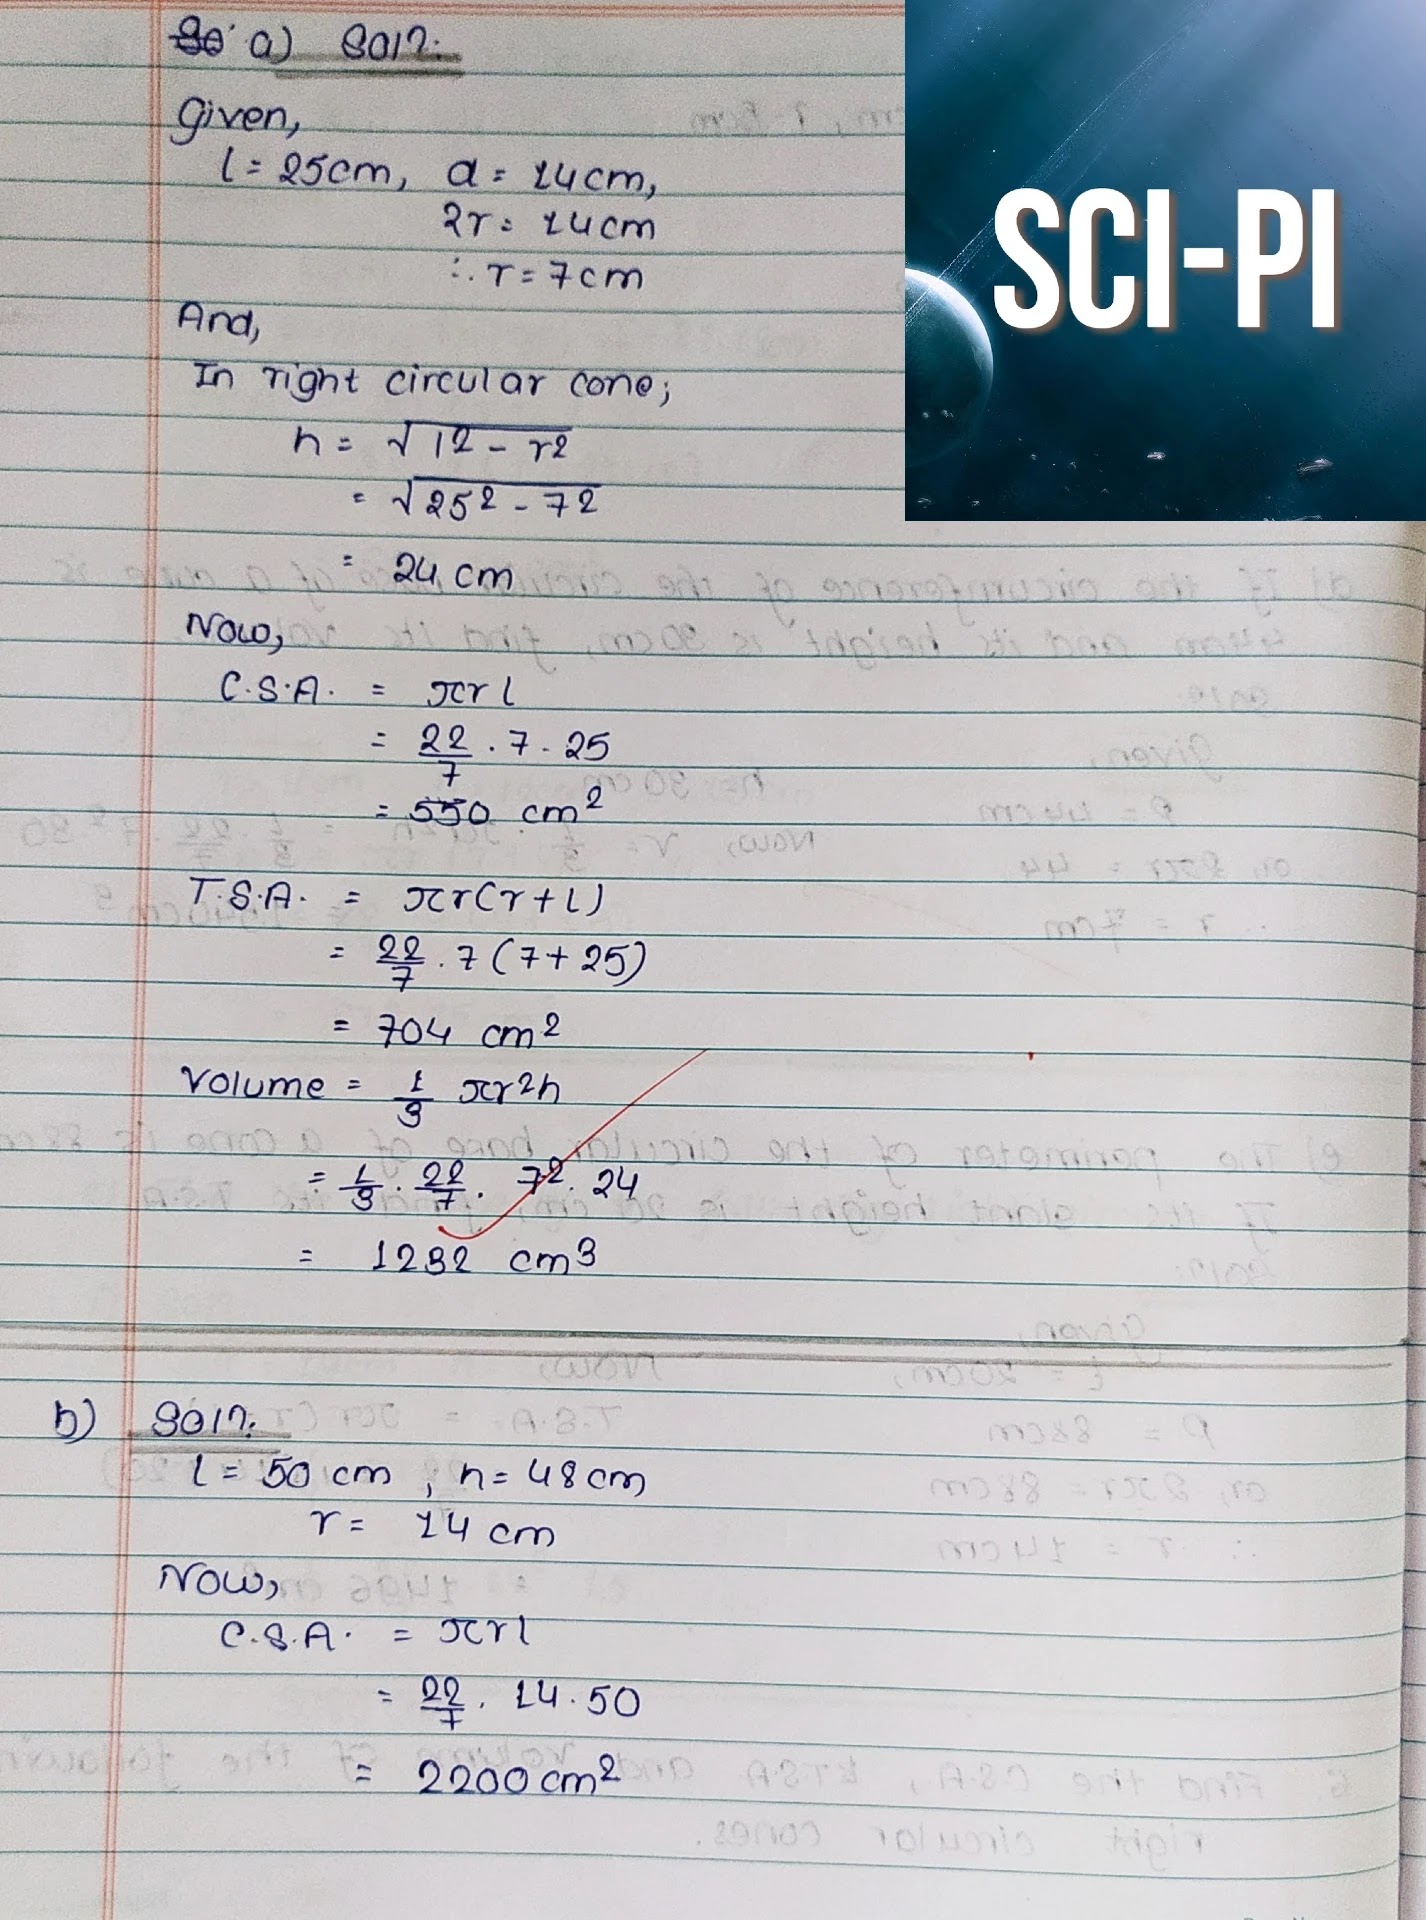 a) Soln:
Given,
l = 25cm, d = 14cm,
2r = 14cm
∴ r = 7cm
And,
In right circular cone;
h = √l2 - r2
= √25² - 7²
= 24 cm
Now,
C.S.A. = πrl
= 22/7 . 7 . 25
= 550 cm²
T.S.A. = πr(r+l)
= 22/7 . 7 (7+25)
= 704 cm²
Volume = 1/3 πr²h
= 1/3 . 22/7 . 7² . 24
= 1232 cm³
b) Soln:
l = 50 cm, h = 48 cm
r = 14 cm
Now,
C.S.A. = πrl
= 22/7 . 14 . 50
= 2200 cm²
SCI-PI